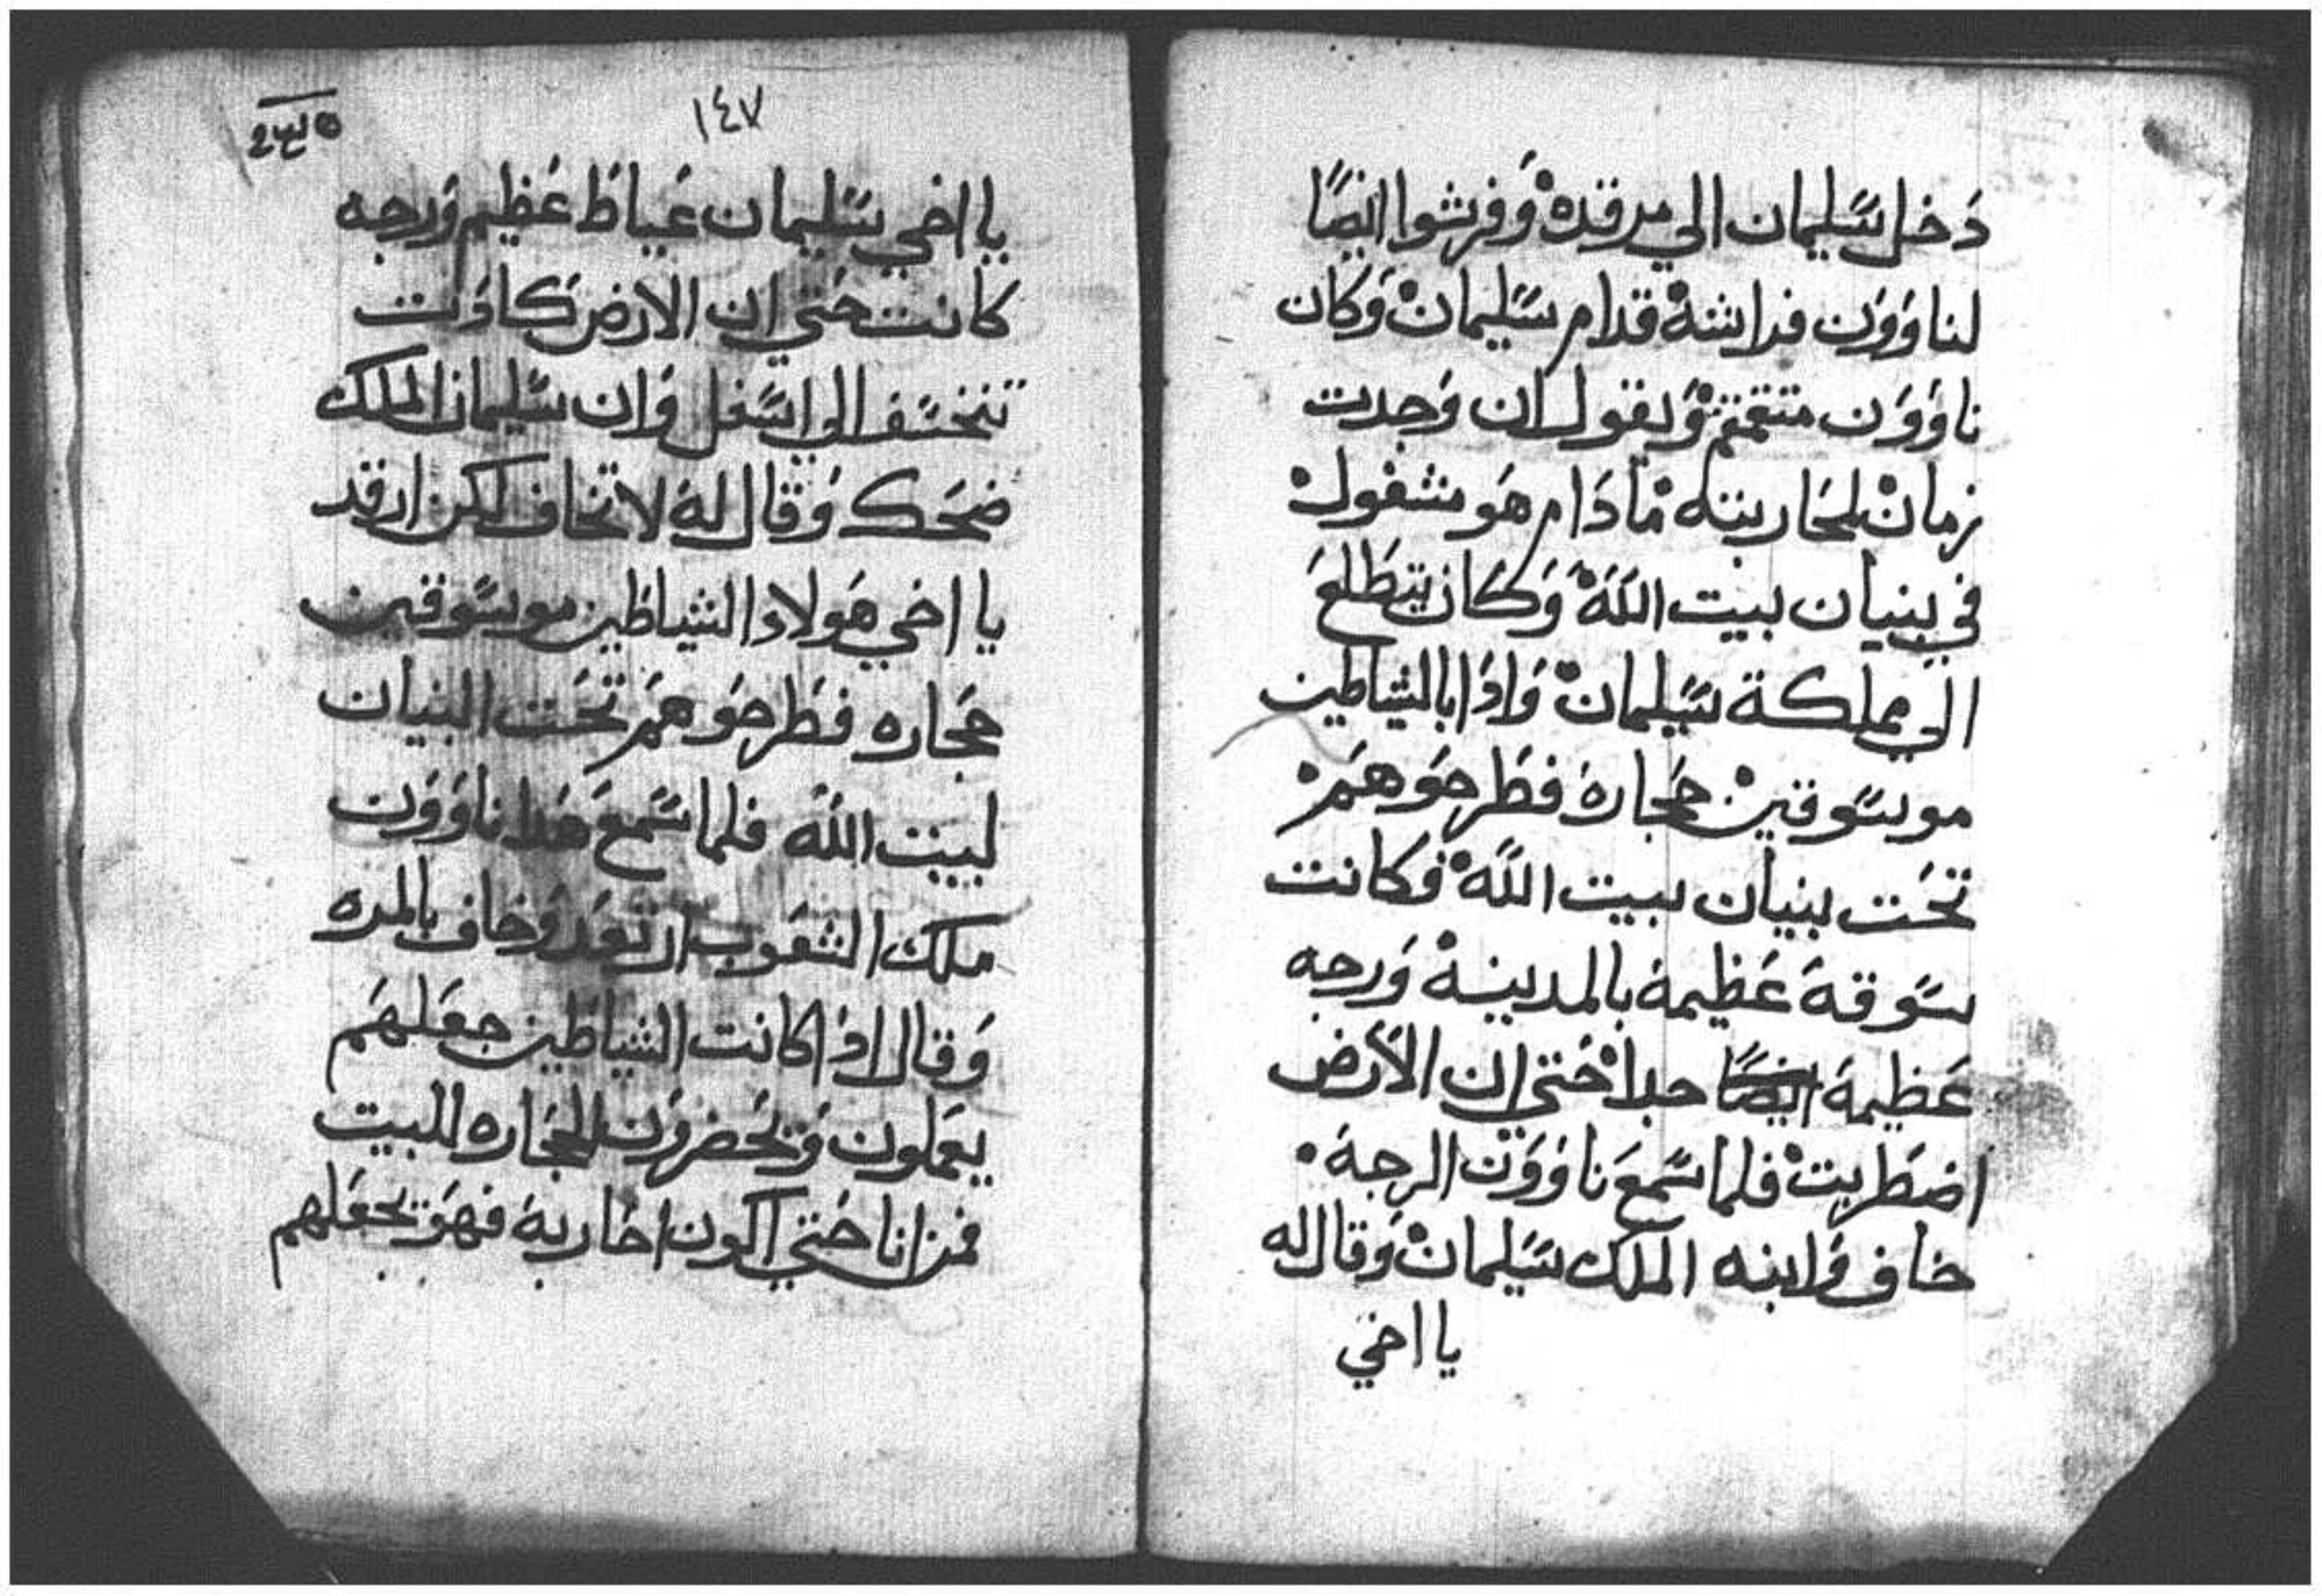 دخل سليمان الي مرقده وفرشوا ايضًا
لناوون فراشة قدام سليمان وكان
ناوون متقمقم ويقول ان وجدت
زمان لمحاربته ما دام هو مشغول
في بنيان بيت الله وكان يتطلع
الي مملكة سليمان واذا بالشياطين
موسوقين حجارة فطرحوهم
تحت بنيان بيت الله فكانت
سوقة عظيمة بالمدينة ورجه
عظيمة جدا حتي ان الارض
اضطربت فلما سمع ناوون الرجة
خاف وابنه الملك سليمان وقال له
يا اخي
١٤٧
يا اخي سليمان عياط عظيم ورجه
كانت حتي ان الارض كادت
تنخسف الي اسفل وان سليمان الملك
ضحك وقال له لا تخاف لكن ارقد
يا اخي هولاء الشياطين موسوقين
حجاره فطرحوهم تحت البنيان
لبيت الله فلما سمع هدا ناوون
ملك الشعوب ارتعد وخاف بالمره
وقال اذا كانت الشياطين جعلهم
يعملون ويحضرون الحجاره للبيت
فمن انا حتي اكون احاربة فهو يجعلهم